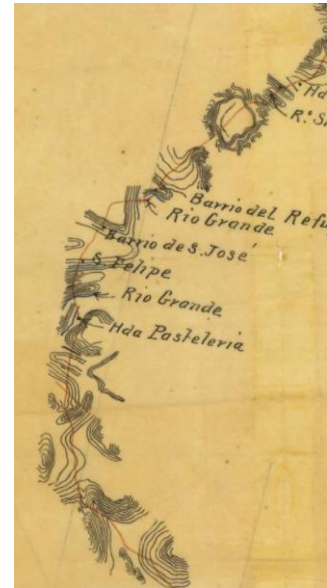 Hd
R.º S
Barrio del Refu
Rio Grande
Barrio de S. José
S. Felipe
Rio Grande
Hda Pasteleria